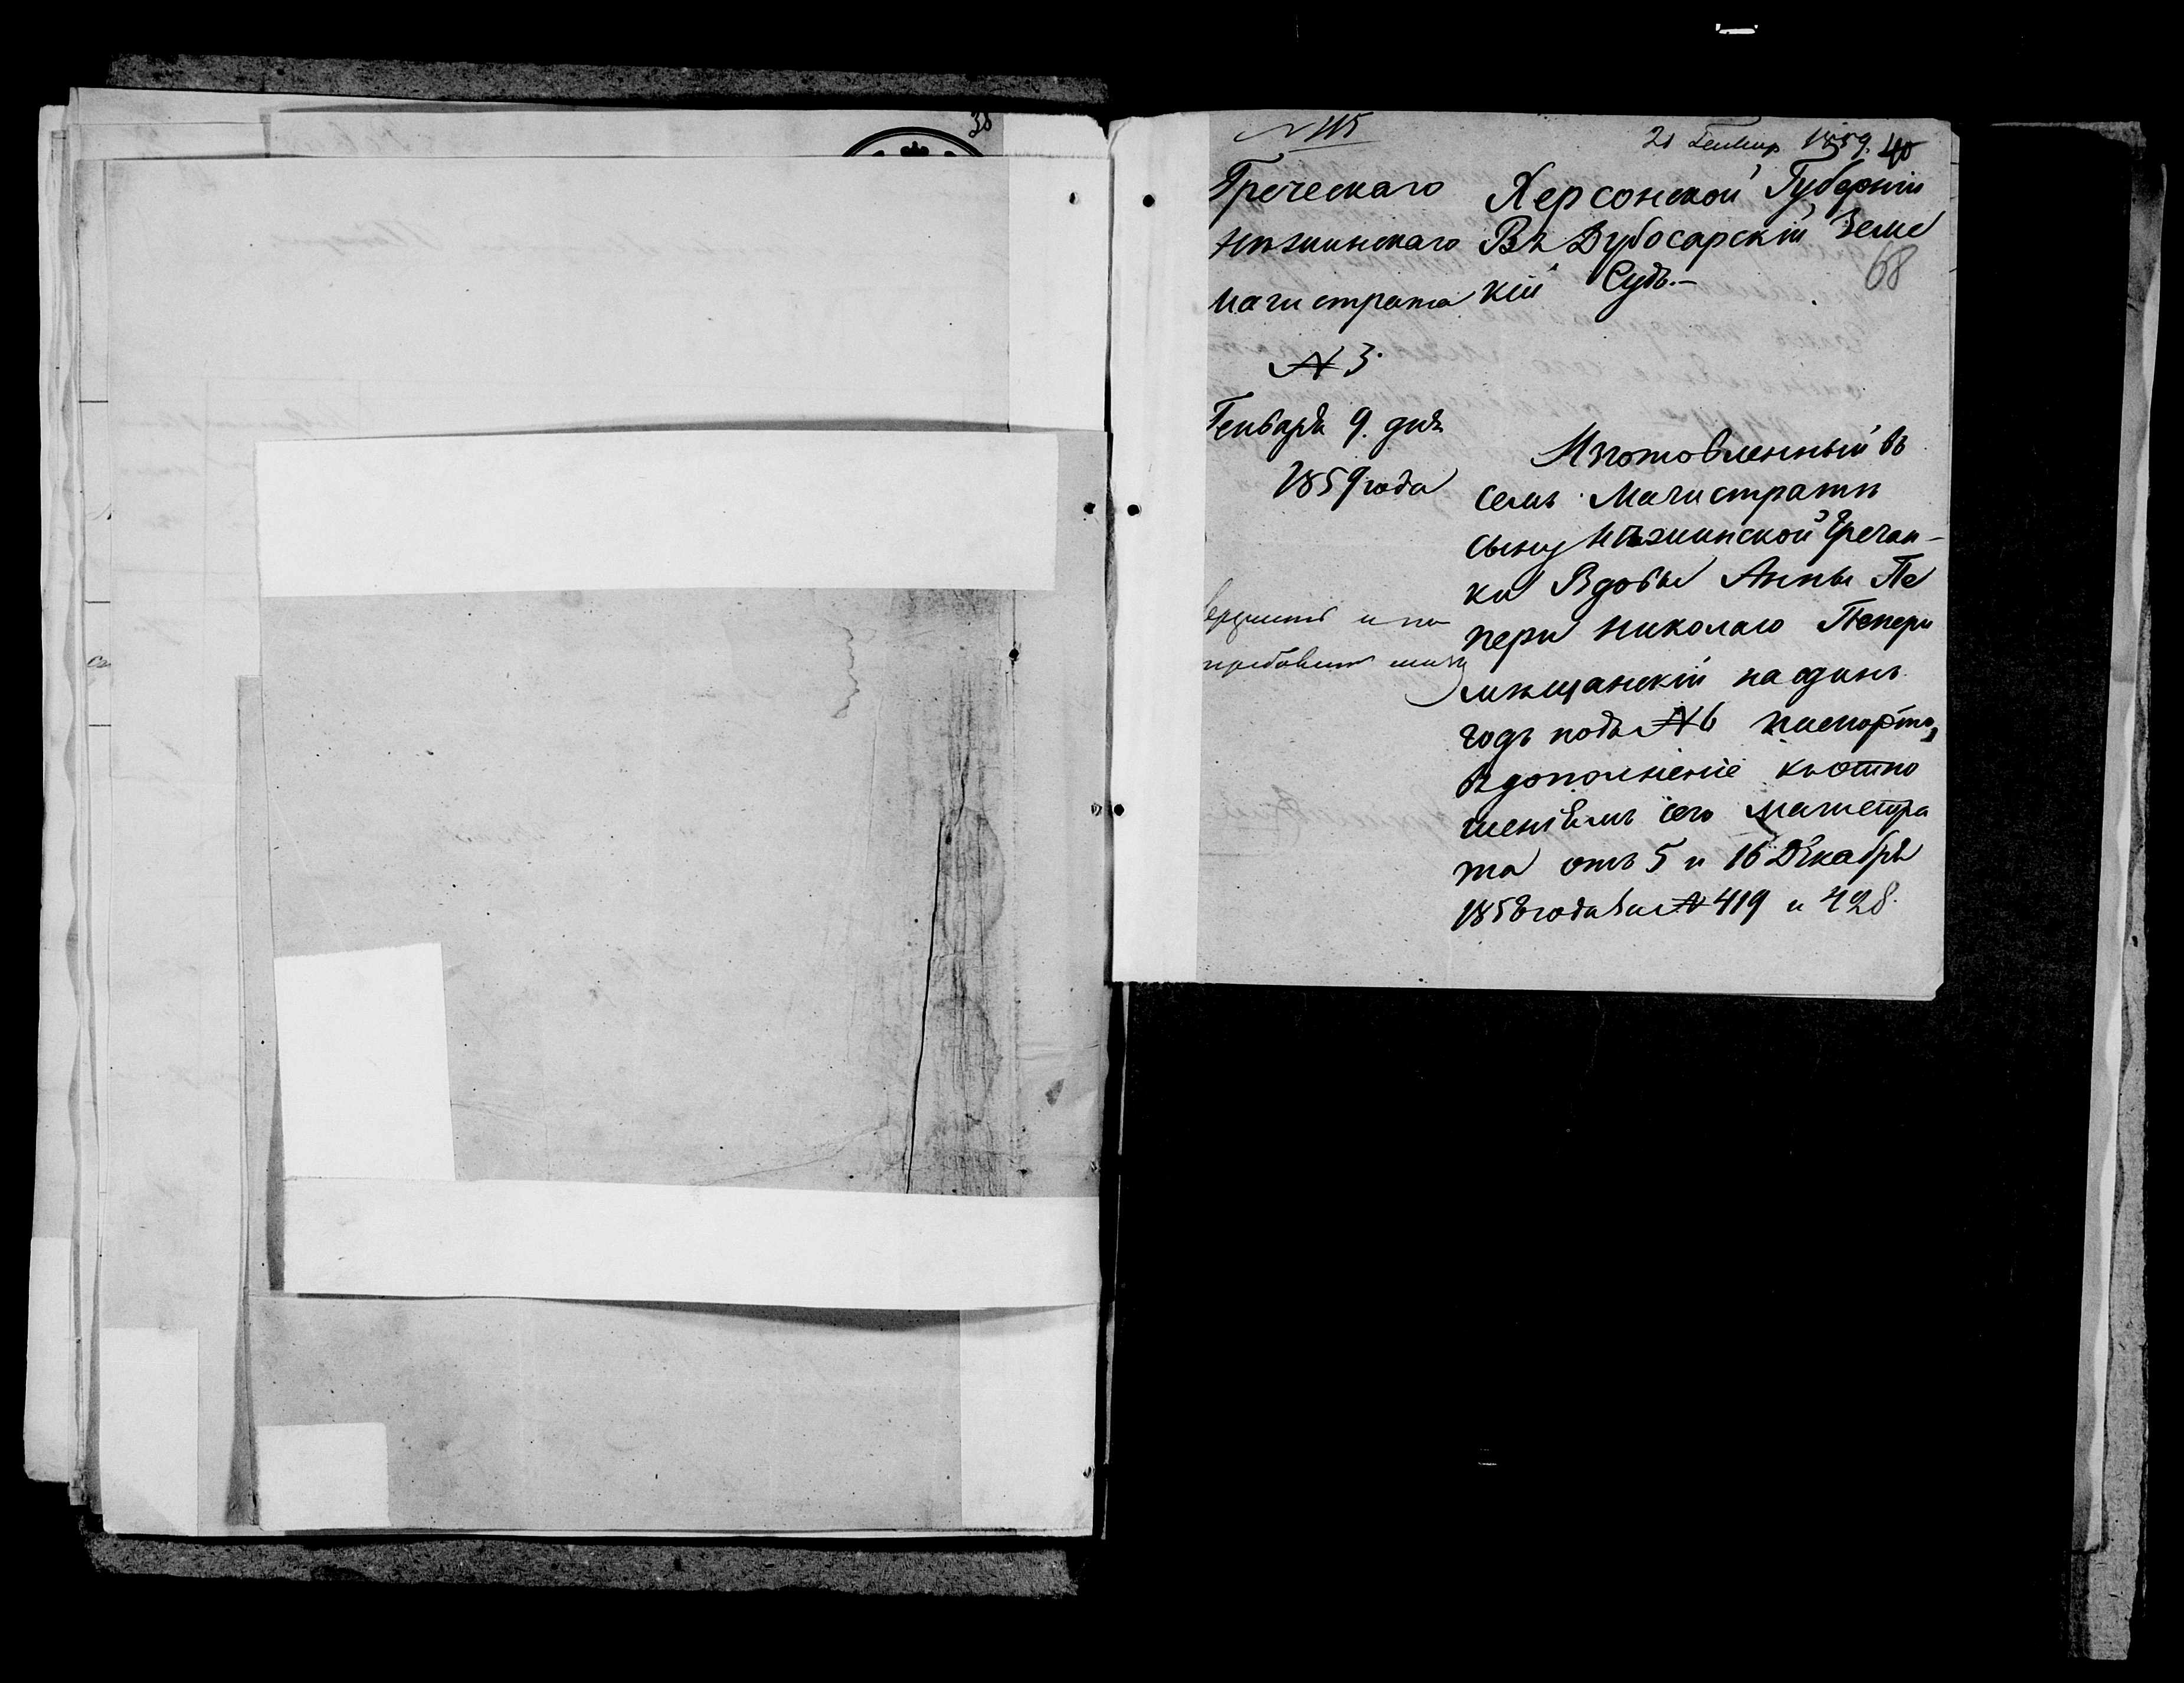 38
№ 115
21 Генвар 1859. 40
68
Греческаго
Нѣжинскаго
Магистрата
№ 3
Генваря 9. дня
1859 года
Херсонской Губерніи
Въ Дубосарскій Земс
кій Судъ.—
Изготовленный въ
семъ Магистратѣ
сыну Нѣжинской Гречан-
ки Вдовы Анны Пе
пери Николаю Пепери
мѣщанскій на одинъ
годъ подъ № 6 паспортъ,
въ дополненіе къ отно
шеніямъ сего Магистра
та отъ 5 и 16 Декабря
1858 года за № 419 и 428.
и по